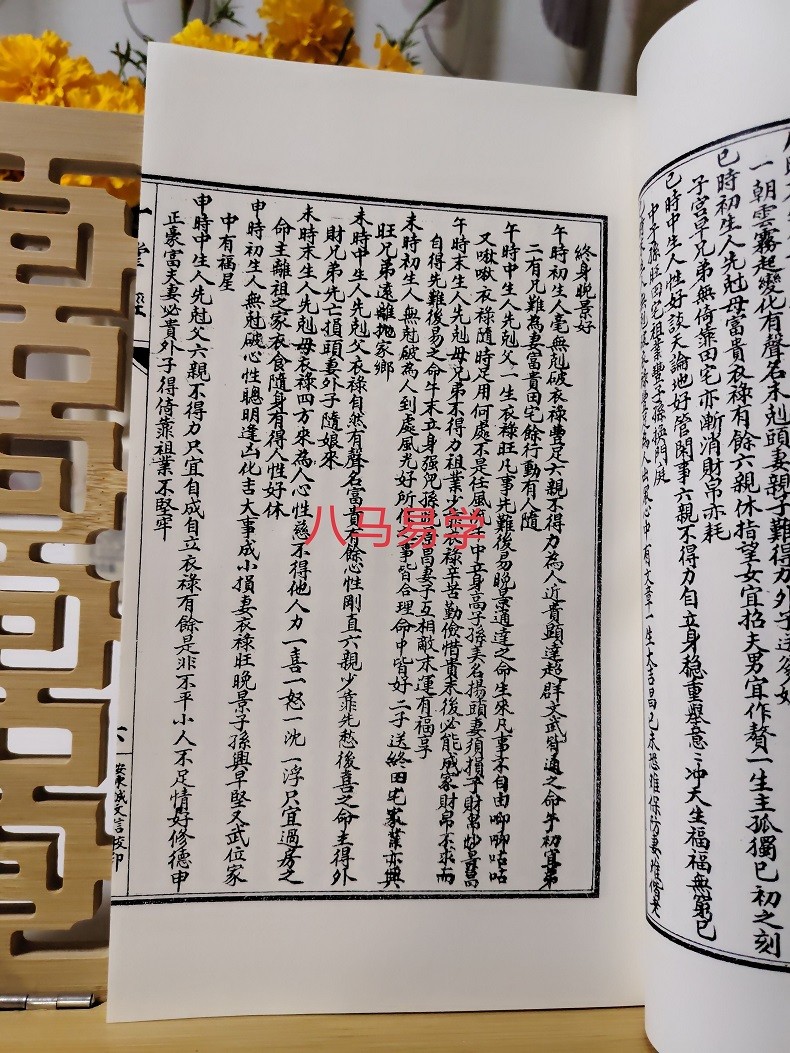 一朝雲霧起變化有聲名未尅頭妻親子難得力外子送多好
巳時初生人先尅母富貴衣祿有餘六親休指望女宜招夫男宜作贅一生主孤獨巳初之刻
子宫早兄弟無倚靠田宅亦漸消財帛亦耗
巳時中生人性好談天論地好管閑事六親不得力自立身稳重舉意冲天生福福無窮巳
中子孫旺田宅祖業豐子孫換門庭
終身晚景好
午時初生人毫無剋破衣祿豊足六親不得力為人近貴顯達超群文武皆通之命午初宜弟
二有兄難為妻富貴田宅餘行動有人隨
午時中生人先剋父一生衣祿旺凡事先難後易晚景通達之命生來凡事不自由唧唧咕咕
又啾啾衣祿隨時足用何處不是任風中立身高子孫美名揚頭妻須損子財帛
午時末生人先尅母兄弟不得力祖業少衣祿辛苦勤儉惜貴末後必能成家財帛不求而
自得先難後易之命午末立身强兕孫昌妻子互相敵末運有福享
未時初生人無尅破為人到處風光好所事皆合理命中皆好二子送終田宅家業亦興
旺兄弟遠離抛家鄉
未時中生人先尅父衣祿自然有聲名富貴有餘心性剛直六親少靠先愁後喜之命主得外
財兄弟先亡損頭妻外子隨娘來
未時末生人先剋母衣祿四方來為人心性慈不得他人力一喜一怒一沈一浮只宜過房之
命主離祖之家衣食隨身有得人性好休
申時初生人無尅破心性聰明逢凶化吉大事成小損妻衣祿旺晚景子孫興早堅又武位家
中有福星
申時中生人先尅父六親不得力只宜自成自立衣祿有餘是非不平小人不足情好修德申
正豪富夫妻必貴外子得倚靠祖業不堅牢
六
安東誠文信校印
八马易学